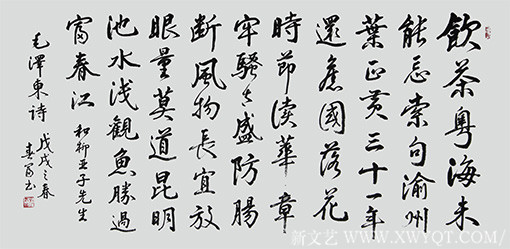 飲茶粵海未
能忘索句渝州
葉正黄三十一年
還舊國落花
時節讀華章
牢騷太盛防腸
斷風物長宜放
眼量莫道昆明
池水淺觀魚勝過
富春江 和柳亞子先生
毛澤東詩 戊戌之春
新文艺 WWW.XWYQT.COM/